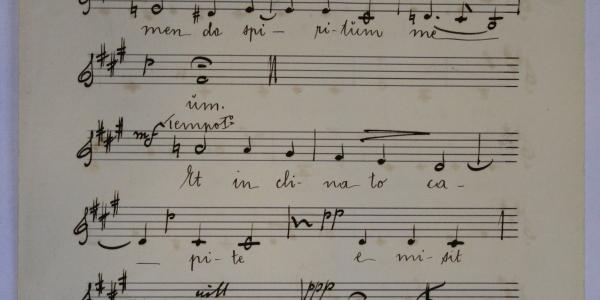 men do spi- ri-tŭm me
p
ŭm.
Tempo I°
mf
Et in cli- na to ca-
p pp
— pi- te e mi- sit
ppp